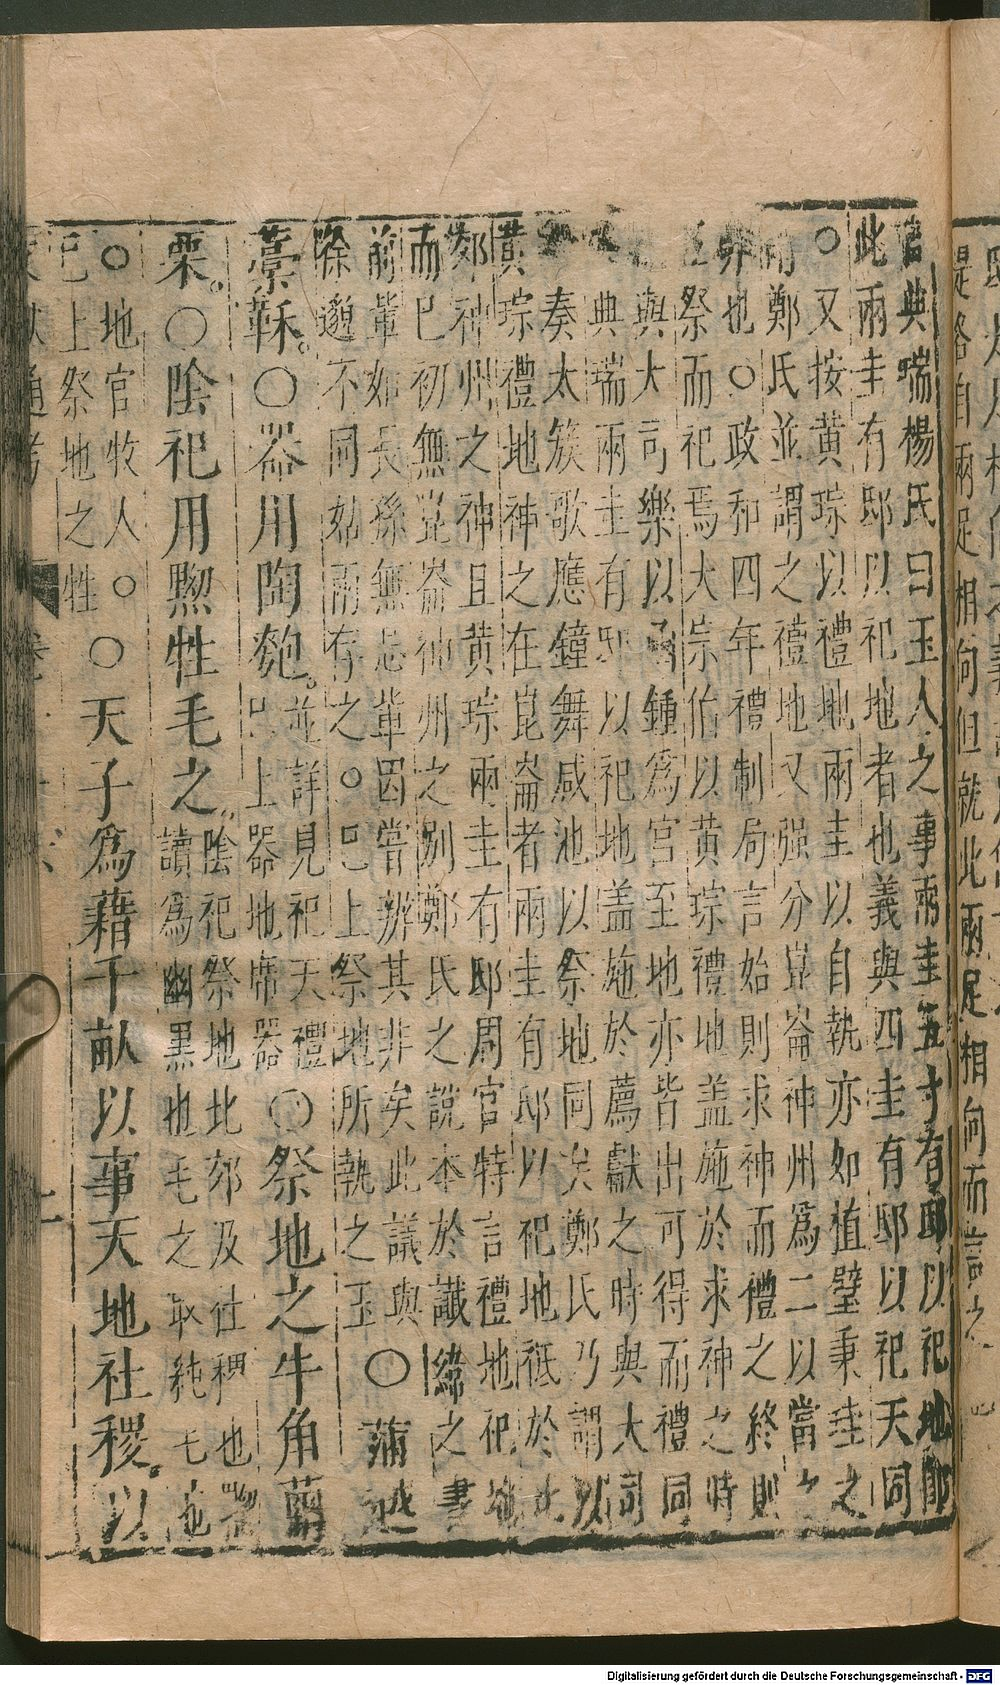 自兩足相向但就此兩足相向而言之
官典瑞楊氏曰玉人之事兩圭五寸有邸以祀地
此兩圭有邸以祀地者也義與四圭有邸以祀天同
〇又按黄琮以禮地兩圭以自執亦如植璧秉圭之
鄭氏並謂之禮地又强分崑崙神州爲二以當
非也〇政和四年禮制局言始則求神而禮之終則
正祭而祀焉大宗伯以黄琮禮地盖施於求神之時
與大司樂以函鍾爲宮至地亦皆出可得而禮同
典瑞兩圭有邸以祀地盖施於薦獻之時與大司
奏太簇歌應鐘舞咸池以祭地同矣鄭氏乃謂以
黄琮禮地神之在崑崙者兩圭有邸以祀地祗於北
郊神州之神且黄琮兩圭有邸周官特言禮地祀地
而巳初無崑崙神州之别鄭氏之說本於讖緯之書
前軰如長孫無忌軰固嘗辨其非矣此議與
徐邈不同姑兩存之〇巳上祭地所執之玉〇蒲越
藁秣。〇器用陶匏。並詳見祀天禮巳上器地席器〇祭地之牛角繭
栗。〇陰祀用黝牲毛之。陰祀祭地北郊及社稷也黝讀爲幽黑也毛之取純毛也
〇地官牧人。〇巳上祭地之牲〇天子爲藉千畝以事天地社稷。以
文獻通考
Digitalisierung gefördert durch die Deutsche Forschungsgemeinschaft - DFG